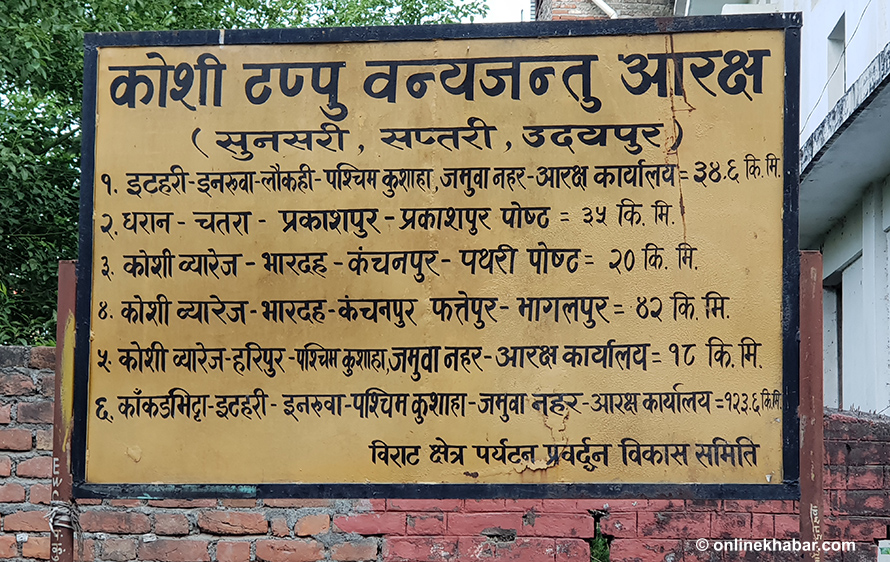 कोशी टप्पु वन्यजन्तु आरक्ष
( सुनसरी , सप्तरी , उदयपुर )
१. इटहरी-इनरुवा-लौकही-पश्चिम कुशाहा, जमुवा नहर-आरक्ष कार्यालय = ३४.६ कि. मि.
२. धरान - चतरा - प्रकाशपुर - प्रकाशपुर पोष्ट = ३५ कि. मि.
३. कोशी व्यारेज - भारदह - कंचनपुर - पथरी पोष्ट = २० कि. मि.
४. कोशी व्यारेज - भारदह - कंचनपुर फत्तेपुर - भागलपुर = ४२ कि. मि.
५. कोशी व्यारेज - हरिपुर - पश्चिम कुशाहा, जमुवा नहर - आरक्ष कार्यालय = १८ कि. मि.
६. काँकडभिट्टा - इटहरी - इनरुवा - पश्चिम कुशाहा - जमुवा नहर - आरक्ष कार्यालय = १२३.६ कि. मि.
विराट क्षेत्र पर्यटन प्रवर्द्न विकास समिति
© onlinekhabar.com